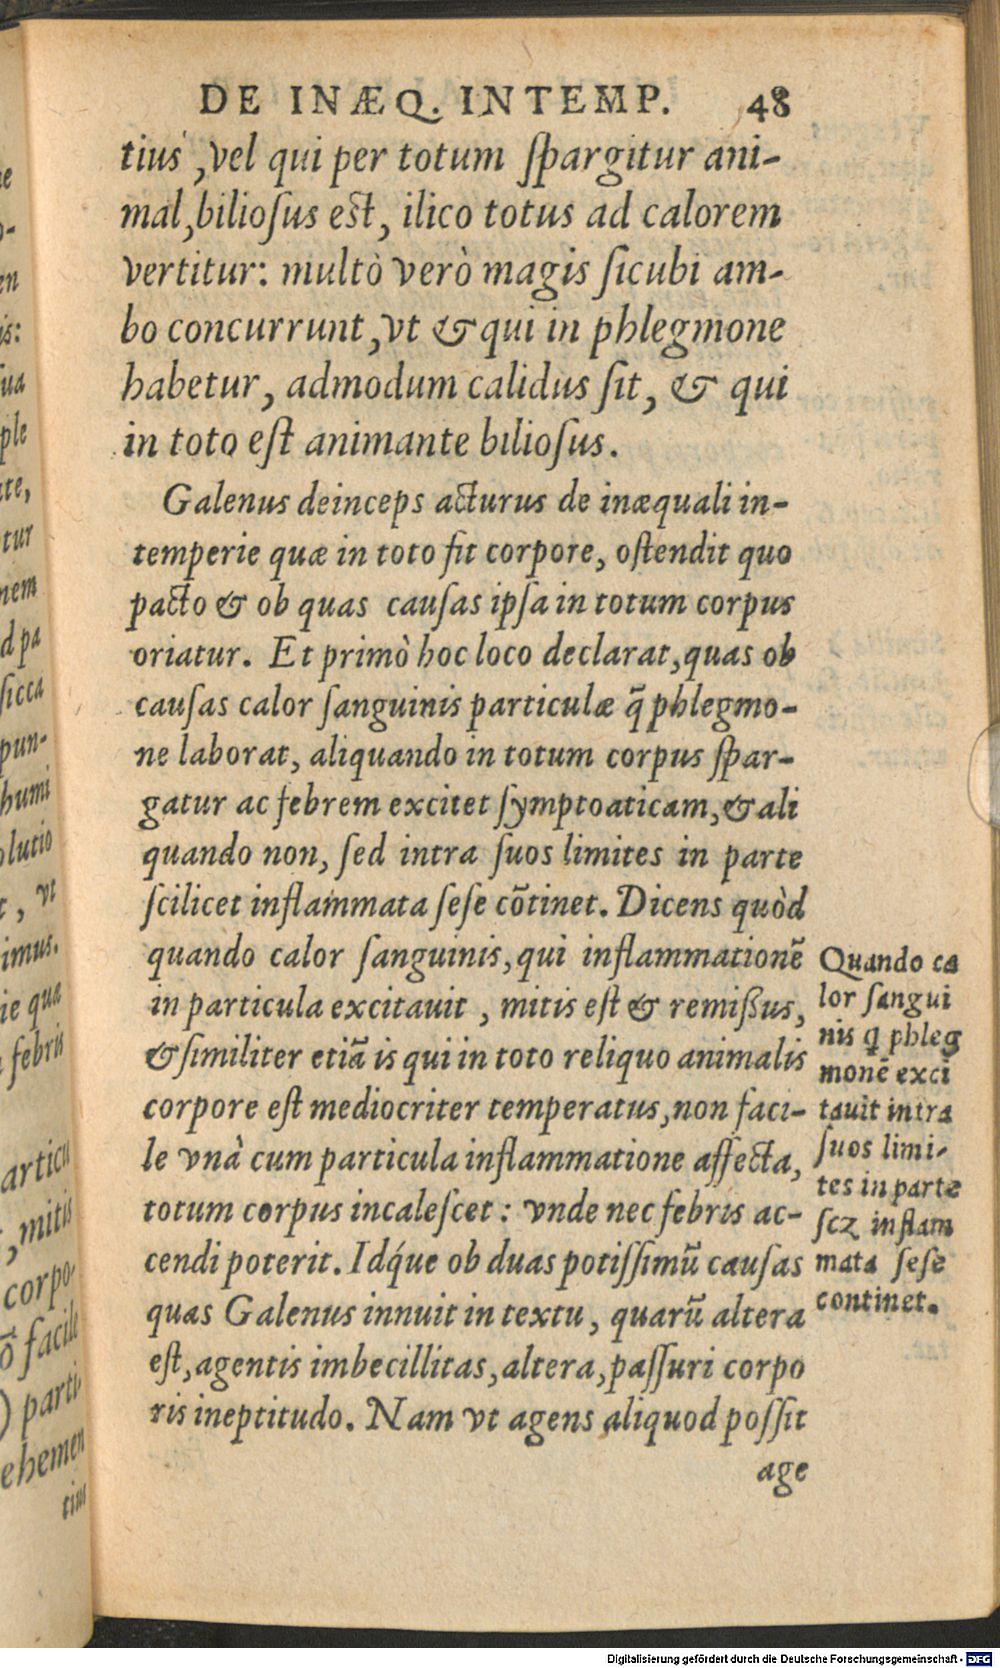 DE INÆQ. INTEMP. 48
tius, vel qui per totum ſpargitur ani-
mal, bilioſus est, ilico totus ad calorem
vertitur: multò verò magis ſicubi am-
bo concurrunt, vt & qui in phlegmone
habetur, admodum calidus ſit, & qui
in toto eſt animante bilioſus.
Galenus deinceps acturus de inæquali in-
temperie quæ in toto fit corpore, oſtendit quo
pacto & ob quas cauſas ipſa in totum corpus
oriatur. Et primò hoc loco declarat, quas ob
cauſas calor ſanguinis particulæ q̃ phlegmo-
ne laborat, aliquando in totum corpus ſpar-
gatur ac febrem excitet ſymptoaticam, & ali
quando non, ſed intra ſuos limites in parte
ſcilicet inflammata ſeſe cõtinet. Dicens quòd
quando calor ſanguinis, qui inflammationẽ
in particula excitauit, mitis eſt & remiſſus,
& ſimiliter etiã is qui in toto reliquo animalis
corpore eſt mediocriter temperatus, non faci-
le vnà cum particula inflammatione affecta,
totum corpus incaleſcet: vnde nec febris ac-
cendi poterit. Idq́ue ob duas potiſſimũ cauſas
quas Galenus innuit in textu, quarũ altera
eſt, agentis imbecillitas, altera, paſſuri corpo
ris ineptitudo. Nam vt agens aliquod poſſit
age
Quando ca
lor ſangui
nis q̃ phleg
monẽ exci
tauit intra
ſuos limi-
tes in parte
ſcz inflam
mata ſeſe
continet.
Digitalisierung gefördert durch die Deutsche Forschungsgemeinschaft - DFG